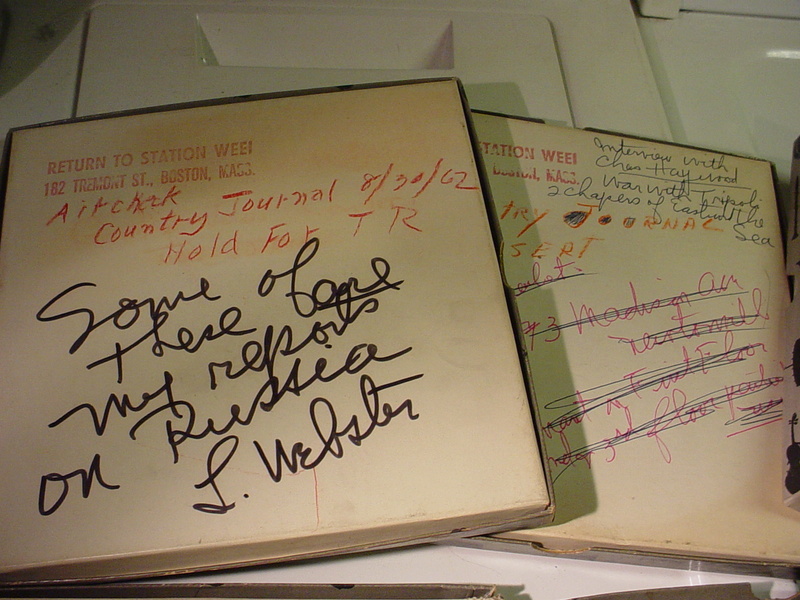 RETURN TO STATION WEEI
182 TREMONT ST., BOSTON, MASS.
Aitchek
Country Journal 8/30/62
Hold For T R
Some of
these are
my reports
on Russia
L. Webster
STATION WEEI
BOSTON, MASS.
Interview with
Chas Haywood
War with Tripoli
2 chapers of Eastward the
Sea
TRY JOURNAL
SERT
#3 Madison Ave